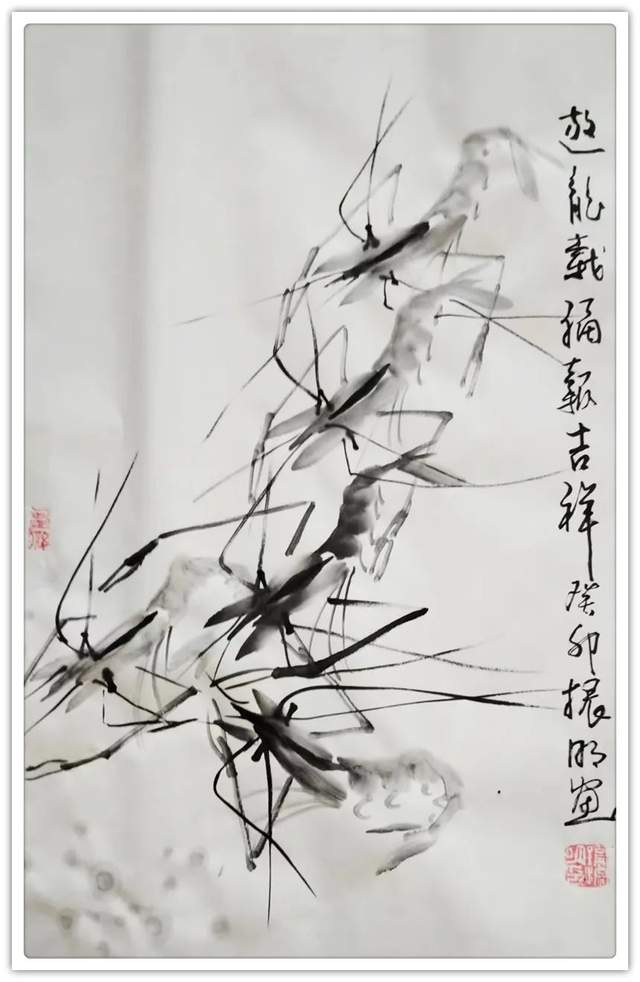 遊龍載福報吉祥癸卯振明畫